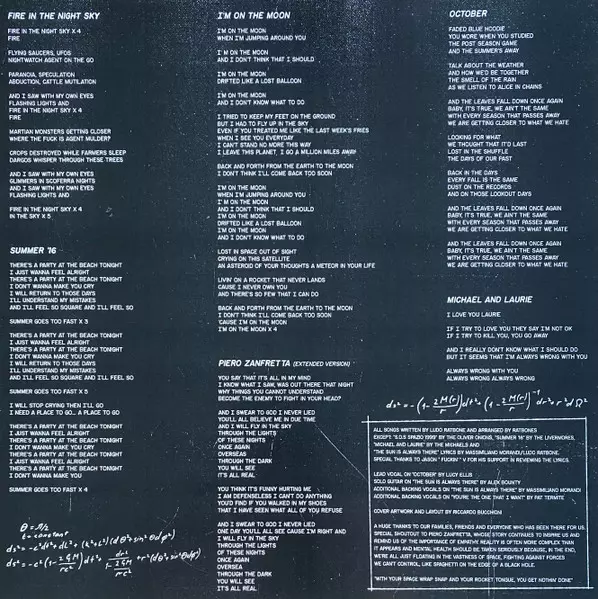 FIRE IN THE NIGHT SKY
FIRE IN THE NIGHT SKY X 4
FIRE
FLYING SAUCERS, UFOS
NIGHTWATCH AGENT ON THE GO
PARANOIA, SPECULATION
ABDUCTION, CATTLE MUTILATION
AND I SAW WITH MY OWN EYES
FLASHING LIGHTS AND
FIRE IN THE NIGHT SKY X 4
FIRE
MARTIAN MONSTERS GETTING CLOSER
WHERE THE FUCK IS AGENT MULDER?
CROPS DESTROYED WHILE FARMERS SLEEP
DARGOS WHISPER THROUGH THESE TREES
AND I SAW WITH MY OWN EYES
GLIMMERS IN SCOFERRA NIGHTS
AND I SAW WITH MY OWN EYES
FLASHING LIGHTS AND
FIRE IN THE NIGHT SKY X 4
IN THE SKY X 5
SUMMER '16
THERE'S A PARTY AT THE BEACH TONIGHT
I JUST WANNA FEEL ALRIGHT
THERE'S A PARTY AT THE BEACH TONIGHT
I DON'T WANNA MAKE YOU CRY
I WILL RETURN TO THOSE DAYS
I'LL UNDERSTAND MY MISTAKES
AND I'LL FEEL SO SQUARE AND I'LL FEEL SO
SUMMER GOES TOO FAST X 3
THERE'S A PARTY AT THE BEACH TONIGHT
I JUST WANNA FEEL ALRIGHT
THERE'S A PARTY AT THE BEACH TONIGHT
I DON'T WANNA MAKE YOU CRY
I WILL RETURN TO THOSE DAYS
I'LL UNDERSTAND MY MISTAKES
AND I'LL FEEL SO SQUARE AND I'LL FEEL SO
SUMMER GOES TOO FAST X 3
I WILL STOP CRYING THEN I'LL GO
I NEED A PLACE TO GO.. A PLACE TO GO
THERE'S A PARTY AT THE BEACH TONIGHT
I JUST WANNA FEEL ALRIGHT
THERE'S A PARTY AT THE BEACH TONIGHT
I DON'T WANNA MAKE YOU CRY
THERE'S A PARTY AT THE BEACH TONIGHT
I JUST WANNA FEEL ALRIGHT
THERE'S A PARTY AT THE BEACH TONIGHT
I DON'T WANNA MAKE YOU
SUMMER GOES TOO FAST X 4
I'M ON THE MOON
I'M ON THE MOON
WHEN I'M JUMPING AROUND YOU
I'M ON THE MOON
AND I DON'T THINK THAT I SHOULD
I'M ON THE MOON
DRIFTED LIKE A LOST BALLOON
I'M ON THE MOON
AND I DON'T KNOW WHAT TO DO
I TRIED TO KEEP MY FEET ON THE GROUND
BUT I HAD TO FLY UP IN THE SKY
EVEN IF YOU TREATED ME LIKE THE LAST WEEK'S FRIES
WHEN I SEE YOU EVERYDAY
I CAN'T STAND NO MORE THIS WAY
I LEAVE THIS PLANET, I GO A MILLION MILES AWAY
BACK AND FORTH FROM THE EARTH TO THE MOON
I DON'T THINK I'LL COME BACK TOO SOON
I'M ON THE MOON
WHEN I'M JUMPING AROUND YOU
I'M ON THE MOON
AND I DON'T THINK THAT I SHOULD
I'M ON THE MOON
DRIFTED LIKE A LOST BALLOON
I'M ON THE MOON
AND I DON'T KNOW WHAT TO DO
LOST IN SPACE OUT OF SIGHT
CRYING ON THIS SATELLITE
AN ASTEROID OF YOUR THOUGHTS A METEOR IN YOUR LIFE
LIVIN' ON A ROCKET THAT NEVER LANDS
CAUSE I NEVER OWN YOU
AND THERE'S SO FEW THAT I CAN DO
BACK AND FORTH FROM THE EARTH TO THE MOON
I DON'T THINK I'LL COME BACK TOO SOON
'CAUSE I'M ON THE MOON
I'M ON THE MOON X 4
PIERO ZANFRETTA (EXTENDED VERSION)
YOU SAY THAT IT'S ALL IN MY MIND
I KNOW WHAT I SAW, WAS OUT THERE THAT NIGHT
WHY THINGS YOU CANNOT UNDERSTAND
BECOME THE ENEMY TO FIGHT IN YOUR HEAD?
AND I SWEAR TO GOD I NEVER LIED
YOU'LL ALL BELIEVE ME IN DUE TIME
AND I WILL FLY IN THE SKY
THROUGH THE LIGHTS
OF THESE NIGHTS
ONCE AGAIN
OVERSEAS
THROUGH THE DARK
YOU WILL SEE
IT'S ALL REAL
YOU THINK IT'S FUNNY HURTING ME
I AM DEFENSELESS I CAN'T DO ANYTHING
YOU'D FIND IF YOU WALKED IN MY SHOES
THAT I HAVE SEEN WHAT ALL OF YOU REFUSE
AND I SWEAR TO GOD I NEVER LIED
ONE DAY YOU'LL ALL SEE CAUSE I'M RIGHT AND
I WILL FLY IN THE SKY
THROUGH THE LIGHTS
OF THESE NIGHTS
ONCE AGAIN
OVERSEA
THROUGH THE DARK
YOU WILL SEE
IT'S ALL REAL
OCTOBER
FADED BLUE HOODIE
YOU WORE WHEN YOU STUDIED
THE POST SEASON GAME
AND THE SUMMER'S AWAY
TALK ABOUT THE WEATHER
AND HOW WE'D BE TOGETHER
THE SMELL OF THE RAIN
AS WE LISTEN TO ALICE IN CHAINS
AND THE LEAVES FALL DOWN ONCE AGAIN
BABY, IT'S TRUE, WE AIN'T THE SAME
WITH EVERY SEASON THAT PASSES AWAY
WE ARE GETTING CLOSER TO WHAT WE HATE
LOOKING FOR WHAT
WE THOUGHT THAT IT'D LAST
LOST IN THE SHUFFLE
THE DAYS OF OUR PAST
BACK IN THE DAYS
EVERY FALL IS THE SAME
DUST ON THE RECORDS
AND ON THOSE LOOKOUT DAYS
AND THE LEAVES FALL DOWN ONCE AGAIN
BABY, IT'S TRUE, WE AIN'T THE SAME
WITH EVERY SEASON THAT PASSES AWAY
WE ARE GETTING CLOSER TO WHAT WE HATE
AND THE LEAVES FALL DOWN ONCE AGAIN
BABY, IT'S TRUE, WE AIN'T THE SAME
WITH EVERY SEASON THAT PASSES AWAY
WE ARE GETTING CLOSER TO WHAT WE HATE
MICHAEL AND LAURIE
I LOVE YOU LAURIE
IF I TRY TO LOVE YOU THEY SAY I'M NOT OK
IF I TRY TO KILL YOU, YOU GO AWAY
AND I REALLY DON'T KNOW WHAT I SHOULD DO
BUT IT SEEMS THAT I'M ALWAYS WRONG WITH YOU
ALWAYS WRONG WITH YOU
ALWAYS WRONG ALWAYS WRONG
ALL SONGS WRITTEN BY LUDO RATBONE AND ARRANGED BY RATBONES
EXCEPT "S.O.S SPAZIO 1999" BY THE OLIVER ONIONS, "SUMMER '16" BY THE LIVERMORES,
"MICHAEL AND LAURIE" BY THE MICHAELS AND
"THE SUN IS ALWAYS THERE" LYRICS BY MASSIMILIANO MORANDI/LUDO RATBONE.
SPECIAL THANKS TO JASON " FUCKIN' " V FOR HIS SUPPORT IN REVIEWING THE LYRICS.
LEAD VOCAL ON "OCTOBER" BY LUCY ELLIS
SOLO GUITAR ON "THE SUN IS ALWAYS THERE" BY ALEX BOUNTY
ADDITIONAL BACKING VOCALS ON "THE SUN IS ALWAYS THERE" BY MASSIMILIANO MORANDI
ADDITIONAL BACKING VOCALS ON "YOU'RE THE ONE THAT I WANT" BY PAT TERMITE
COVER ARTWORK AND LAYOUT BY RICCARDO BUCCHIONI
A HUGE THANKS TO OUR FAMILIES, FRIENDS AND EVERYONE WHO HAS BEEN THERE FOR US.
SPECIAL SHOUTOUT TO PIERO ZANFRETTA, WHOSE STORY CONTINUES TO INSPIRE US AND
REMIND US OF THE IMPORTANCE OF EMPATHY. REALITY IS OFTEN MORE COMPLEX THAN
IT APPEARS AND MENTAL HEALTH SHOULD BE TAKEN SERIOUSLY BECAUSE, IN THE END,
WE'RE ALL JUST FLOATING IN THE VASTNESS OF SPACE, FIGHTING AGAINST FORCES
WE CAN'T CONTROL, LIKE SPAGHETTI ON THE EDGE OF A BLACK HOLE.
"WITH YOUR SPACE WRAP SNAP AND YOUR ROCKET TONGUE, YOU GET NOTHIN' DONE"